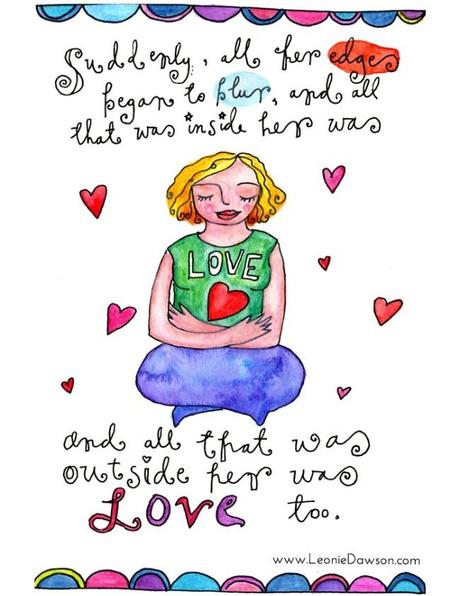 Suddenly, all her edges
began to blur, and all
that was inside her was
LOVE
and all that was
outside her was
LOVE too.
www.LeonieDawson.com